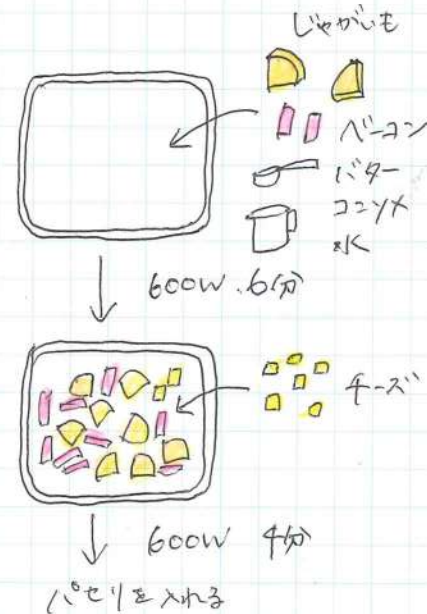 じゃがいも
ベーコン
バター
コンソメ
水
600W.6分
チーズ
600W 4分
パセリを入れる